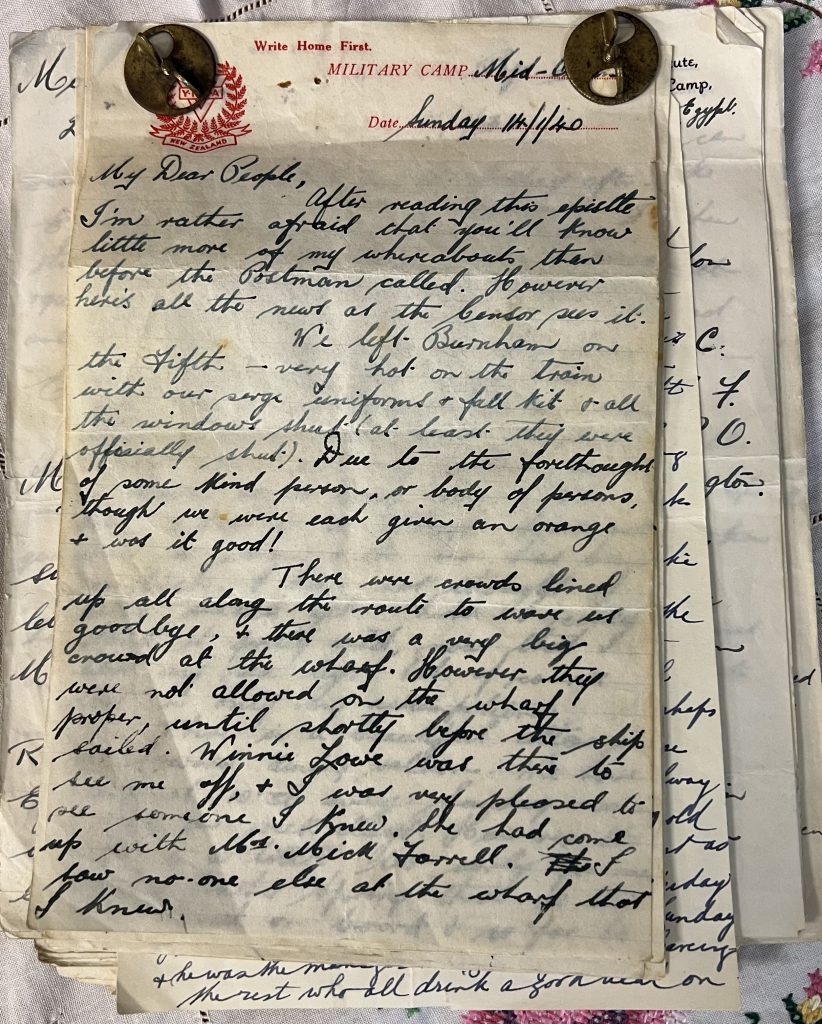 Write Home First.
MILITARY CAMP Mid-
Y.M.C.A
NEW ZEALAND
Date Sunday 14/1/40
My Dear People,
After reading this epistle
I'm rather afraid that you'll know
little more of my whereabouts than
before the Postman called. However
here's all the news as the Censor sees it.
We left Burnham on
the Fifth – very hot on the train
with our serge uniforms & full kit & all
the windows shut (at least they were
officially shut). Due to the forethought
of some kind person, or body of persons,
though we were each given an orange
& was it good!
There were crowds lined
up all along the route to wave us
goodbye, & there was a very big
crowd at the wharf. However they
were not allowed on the wharf
proper, until shortly before the ship
sailed. Winnie Lowe was there to
see me off, & I was very pleased to
see someone I knew. She had come
up with Mrs. Mick Farrell. I
saw no-one else at the wharf that
I knew.
ute,
Camp,
Egypt.
C.
F.
O.
gton.
the
haps
way.
old
as
unday
& he was the
the rest who all drink a good beer on